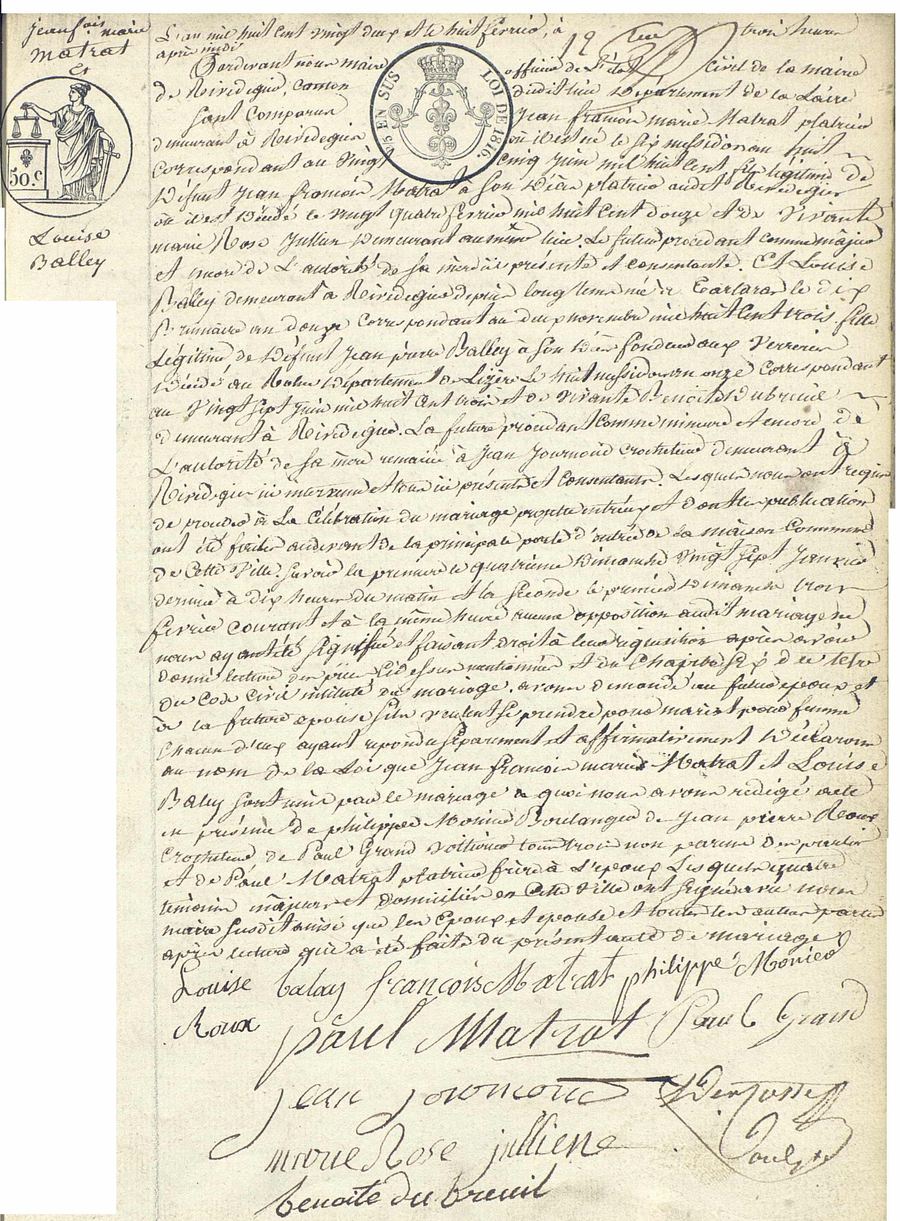 jean fois marie
Matrat
Et
50.c
Louise
Balley
V5 EN SUS LOI DE 1816.
L'an mil huit cent vingt deux et le huit fevrier, à trois heures
après midi
Pardevant nous maire officier de l'état civil de la mairie
de Rivedegier, Canton dudit lieu Département de la Loire
Sont Comparus Jean francois marie Matrat platrier
demeurant à Rivedegier où il est né le six messidor an huit
correspondant au vingt cinq juin mil huit cent fils légitime de
Défunt Jean francois Matrat à son décès platrier audit Rivedegier
où il est décédé le vingt quatre fevrier mil huit cent douze et de vivante
marie Rose Jullien demeurant au même lieu. Le futur procédant comme majeur
et encore de l'autorité de sa mère ici présente et consentante. Et Louise
Balley demeurant à Rivedegier depuis longtems née à Tartaras le dix
Brumaire an douze correspondant au deux novembre mil huit cent trois fille
légitime de Défunt Jean pierre Balley à son décès fondeur aux verreries
Décédé au Département de Lizère le huit messidor an onze correspondant
au vingt sept juin mil huit cent trois et de vivante Benoite Dubreuil
demeurant à Rivedegier. La future procédant comme mineure et encore de
L'autorité de sa mère remariée à Jean Journoud crocheteur demeurant à
Rivedegier ici présents et consentants. Lesquels nous ont requis
de procéder à La Célébration du mariage projetté entr'eux et dont les publications
ont été faites audevant de la principale porte d'entrée de la maison Commune
de Cette Ville. Savoir la première le quatrième dimanche vingt sept Janvier
dernier à dix heures du matin et la seconde le premier Dimanche trois
fevrier courant et à la même heure aucune opposition audit mariage ne
nous ayant été signifiée et faisant droit à leur requisition après avoir
donné lecture des pièces cidessus mentionnées et du Chapitre six du titre
du Code Civil intitulé du mariage. avons demandé au futur epoux et
à la future epouse s'ils veulent se prendre pour mari et pour femme
Chacun d'eux ayant repondu séparément et affirmativement Déclarons
au nom de la Loi que Jean francois marie Matrat et Louise
Balley sont unis par le mariage de quoi nous avons rédigé acte
en présence de philippe Monier Boulanger de Jean pierre Roux
Crocheteur de Paul Grand voiturier tous trois non parens des parties
et de Paul Matrat platrier frère à l'epoux Lesquels quatre
témoins majeurs et domiciliés en Cette Ville ont signé avec nous
maire susdit ainsi que les Epoux et epouse et toutes les autres parties
après lecture qui a été faite du présent acte de mariage
Louise balay francois Matrat philippe Monier
Roux paul Matrat Paul Grand
jean journoud
marie Rose jullienne
benoite du breuil